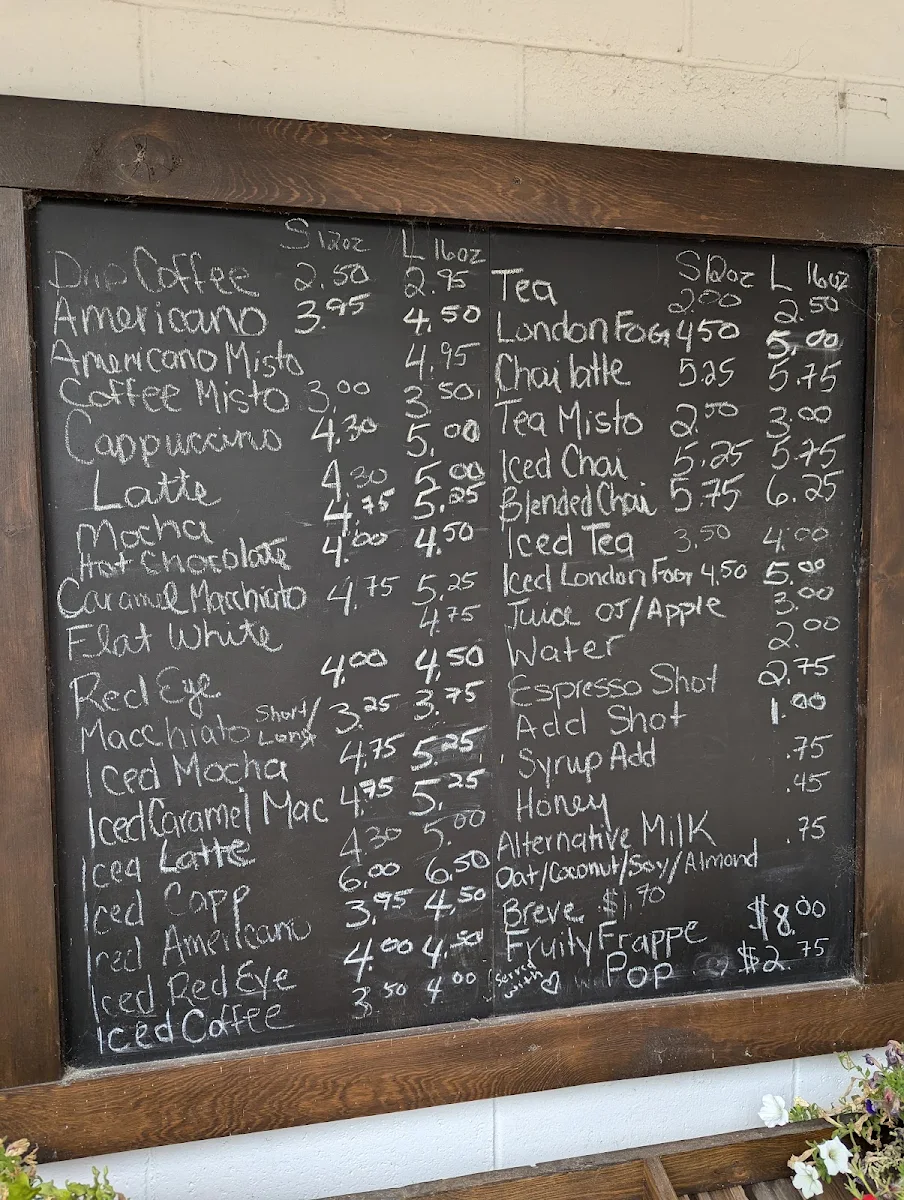 S 12oz L 16oz
Drip Coffee 2.50 2.95
Americano 3.95 4.50
Americano Misto 4.95
Coffee Misto 3.00 3.50
Cappuccino 4.30 5.00
Latte 4.30 5.00
Mocha 4.75 5.25
Hot Chocolate 4.00 4.50
Caramel Macchiato 4.75 5.25
Flat White 4.75
Red Eye 4.00 4.50
Macchiato Short/Long 3.25 3.75
Iced Mocha 4.75 5.25
Iced Caramel Mac 4.75 5.25
Iced Latte 4.30 5.00
Iced Capp 6.00 6.50
Iced Americano 3.95 4.50
Iced Red Eye 4.00 4.50
Iced Coffee 3.50 4.00
S 12oz L 16oz
Tea 2.00 2.50
London Fog 4.50 5.00
Chai latte 5.25 5.75
Tea Misto 2.50 3.00
Iced Chai 5.25 5.75
Blended Chai 5.75 6.25
Iced Tea 3.50 4.00
Iced London Fog 4.50 5.00
Juice OJ/Apple 3.00
Water 2.00
Espresso Shot 2.75
Add Shot 1.00
Syrup Add .75
Honey .45
Alternative Milk .75
Oat/Coconut/Soy/Almond
Breve $1.70
Fruity Frappe $8.00
Pop $2.75
Served with ♡